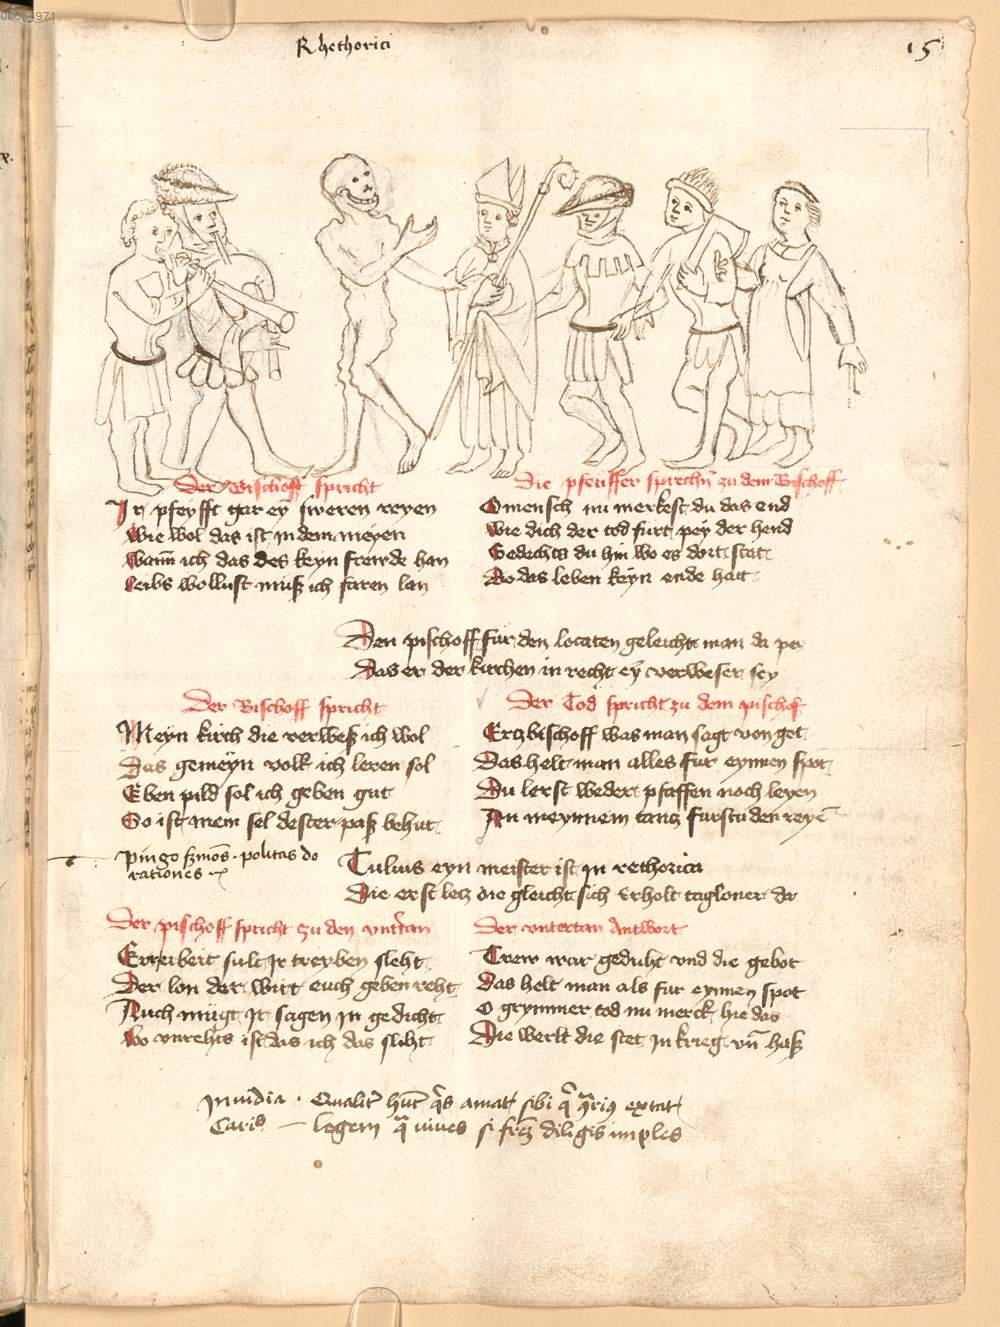 Rhethorici
15
Der Bischoff spricht
Ir pfeyfft gar eyn sweren reyen
Wie wol das ist in dem meyen
Wann ich das des keyn frewde han
leibs wollust muß ich faren lan
Die pfeuffer sprechn zu dem Bischoff
O mensch nu merkest du das end
wie dich der tod furt pey der hend
Gedechts du hin wo es dort stat
Do das leben keyn ende hatt
Den pischoff fur den locaten geleicht man da pey
Das er der kirchen in recht eyn verweser sey
Der Bischoff spricht
Meyn kirch die verweß ich wol
Das gemeyn volk ich leren sol
Eben pild sol ich geben gut
So ist mein sel dester paß behut
Der Tod spricht zu dem pischof
Erczbischoff was man sagt von got
Das helt man alles fur eynnen spot
Du lerst weder pfaffen noch leyen
An meynnem tancz furstu den reyen
Pingo politas do
rationes
Tulius eyn meister ist in rethorica
Die erst lecz die gleicht sich tagloner da
Der pischoff spricht zu den
sult ir treyben sleht
Der lon der wirt euch geben reht
Auch mugt ir sagen in gedicht
wo unrehts ist das ich das sliht
Der untertan Antwort
Trew war geduht und die gebot
Das helt man als fur eynnen spot
O grymmer tod nu merck hie das
Die werlt die stet in krieg vnd haß
Inuidia · Qualiter amat sibi extat
Caris — legem vives si diligis imples